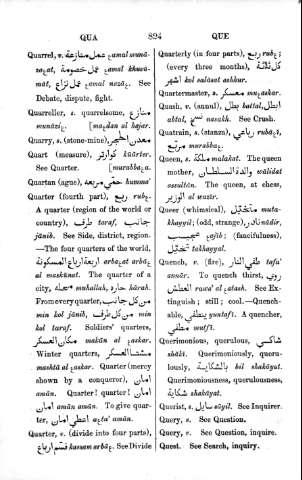 QUA
824
QUE
Quarred, v. عمل منازعة ᴣamal muná-
zaᴣat, عمل خصومة ᴣamal khuṣú-
mát, عمل نزاع ᴣamal nazáᴣ. See
Debate, dispute, fight.
Quarreller, s. quarrelsome, منازع
munáziᴣ. [maᴣdan al ḥajar.
Quarry, s. (stone-mine), معدن الحجر
Quart (measure), كوارتر kúärter.
See Quarter. [murabbaᴣa.
Quartan (ague), حمى مربعه humma'
Quarter (fourth part), ربع rubᴣ.
A quarter (region of the world or
country), طرف taraf, جانب
jánib. See Side, district, region.
—The four quarters of the world,
اربعة ارباع المسكونة arbaᴣat arbáᴣ
al maskúnat. The quarter of a
city, محله muhallah, حارة hárah.
From every quarter, من كل جانب
min kol jánib, من كل طرف min
kol taraf. Soldiers' quarters,
مكان العسكر makán al ᴣaskar.
Winter quarters, مشتا العسكر
mashtá al ᴣaskar. Quarter (mercy
shown by a conqueror), امان
amán. Quarter! quarter! امان
امان amán amán. To give quar-
ter, اعطي امان aᴣta' amán.
Quarter, v. (divide into four parts),
قسم ارباع kasam arbáᴣ. See Divide
Quarterly (in four parts), ربع rubᴣ;
(every three months), كل ثلاثة
اشهر kol salásat ashhur.
Quartermaster, s. معسكر muᴣaskar.
Quash, v. (annul), بطل battal, ابطل
abtal, نسق nasakh. See Crush.
Quatrain, s. (stanza), رباعي rubáᴣí,
مربع murabbaᴣ.
Queen, s. ملكة malakat. The queen
mother, والدة السلطان wálidat
assultán. The queen, at chess,
الوزير al wazír.
Queer (whimsical), متخيل muta-
khayyil; (odd, strange), نادر nádir,
عجيب ᴣajíb; (fancifulness),
تخيل takhayyal.
Quench, v. (fire), طفي النار tafa'
annár. To quench thirst, روي
العطش rawa' al ᴣatash. See Ex-
tinguish; still; cool.—Quench-
able, ينطفي yuntafi. A quencher,
مطفي mutfi.
Querimonious, querulous, شاكي
sháki. Querimoniously, queru-
lously, بالشكاية bil shakáyat.
Querimoniousness, querulousness,
شكاية shakáyat.
Querist, s. سايل sáyil. See Inquirer.
Query, s. See Question.
Query, v. See Question, inquire.
Quest. See Search, inquiry.